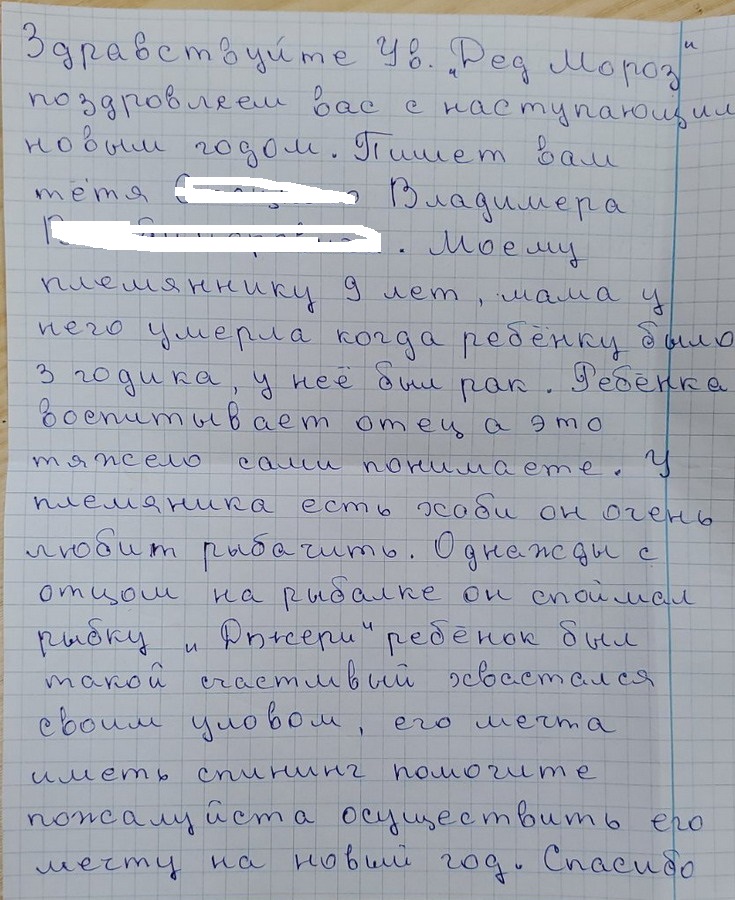 Здравствуйте Ув. "Дед Мороз"
поздровлеем вас с наступающим
новым годом. Пишет вам
тётя Владимера
. Моему
племяннику 9 лет, мама у
него умерла когда ребёнку было
3 годика, у неё был рак. Ребёнка
воспитывает отец а это
тяжело сами понимаете. У
племяника есть хоби он очень
любит рыбачить. Однажды с
отцом на рыбалке он споймал
рыбку "Джери" ребёнок был
такой счастливый хвастался
своим уловом, его мечта
иметь спининг помогите
пожалуйста осуществить его
мечту на новый год. Спасибо